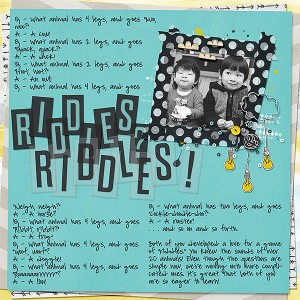 Q - What animal has 4 legs, and goes "Moo,
moo"?
A - A cow!
Q - What animal has 2 legs, and goes
"Quack, quack"?
A - A duck!
Q - What animal has 2 legs, and goes
"Hoot, hoot"?
A - An owl!
Q - What animal has 4 legs, and goes
RIDDLES,
RIDDLES!
"Neigh, neigh"?
A - A horse!
Q - What animal has 4 legs, and goes
"Ribbit, ribbit"?
A - A frog!
Q - What animal has 4 legs, and goes
"Woof, woof"?
A - A doggie!
Q - What animal has 4 legs, and goes
A - A lion!
Q - What animal has two legs, and goes
"Cockle-doodle-doo"?
A - A rooster!
... and so on and so forth.
Both of you developed a love for a game
of "riddles." You knew the sounds of over
20 animals! Even though the questions are
simple now, we're moving into more compli-
cated ones. It's great that both of you
are so eager to learn!